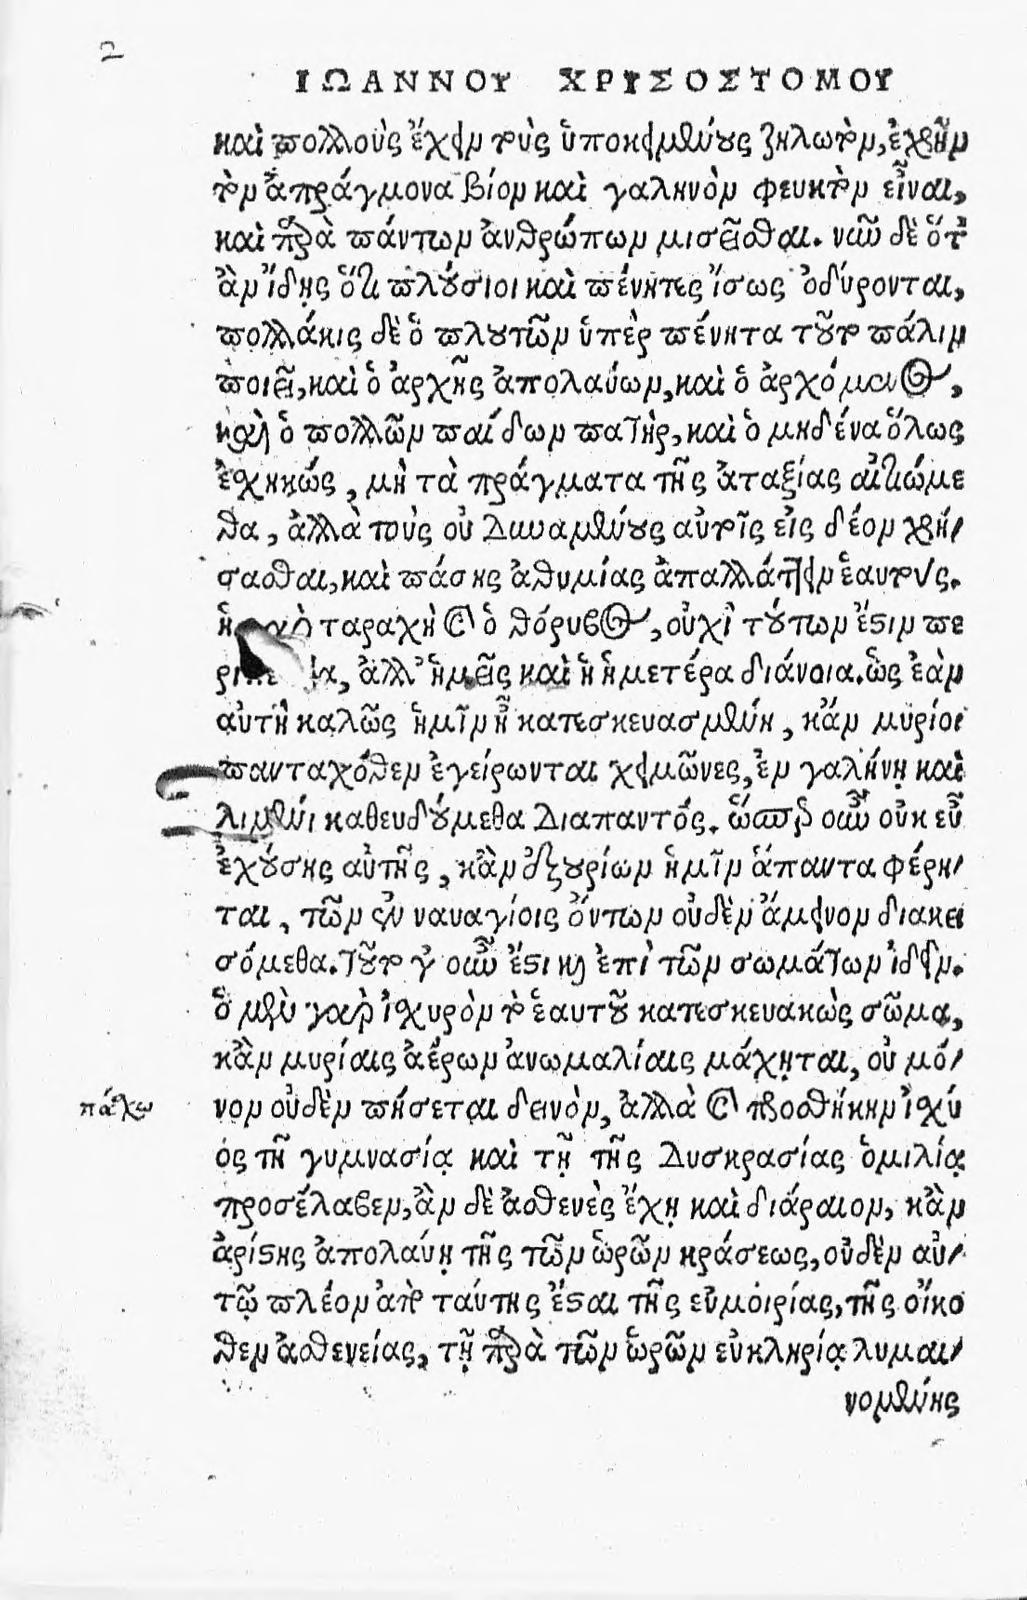 2
ΙΩΑΝΝΟΥ ΧΡΙΣΟΣΤΟΜΟΥ
καὶ πολλοὺς ἔχειν τοὺς ὑποκειμένους ζηλωτὸν, ἐχρῆν
τὸν ἀπράγμονα βίον καὶ γαληνὸν φευκτὸν εἶναι,
καὶ παρὰ πάντων ἀνθρώπων μισεῖσθαι. νῦν δὲ ὅτ᾽
ἂν ἴδῃς ὅτι πλούσιοι καὶ πένητες ἴσως ὀδύρονται,
πολλάκις δὲ ὁ πλουτῶν ὑπὲρ πένητα τοῦτο πάλιν
ποιεῖ, καὶ ὁ ἀρχῆς ἀπολαύων, καὶ ὁ ἀρχόμενος,
καὶ ὁ πολλῶν παίδων πατὴρ, καὶ ὁ μηδένα ὅλως
ἐσχηκώς, μὴ τὰ πράγματα τῆς ἀταξίας αἰτιώμε
θα, ἀλλὰ τοὺς οὐ δυναμένους αὐτοῖς εἰς δέον χρή/
σασθαι, καὶ πάσης ἀθυμίας ἀπαλλάττειν ἑαυτούς.
ἡ γὰρ ταραχὴ καὶ ὁ θόρυβος, οὐχὶ τούτων ἔστιν πε
ἀλλ᾽ ἡμεῖς καὶ ἡ ἡμετέρα διάνοια. ὡς ἐὰν
αὐτὴ καλῶς ἡμῖν ᾖ κατεσκευασμένη, κἂν μυρίοι
πανταχόθεν ἐγείρωνται χειμῶνες, ἐν γαλήνῃ καὶ
λιμένι καθευδούμεθα διαπαντός. ὥσπερ οὖν οὐκ εὖ
ἐχούσης αὐτῆς, κἂν ἐξ οὐρίων ἡμῖν ἅπαντα φέρη/
ται, τῶν ἐν ναυαγίοις ὄντων οὐδὲν ἄμεινον διακει
σόμεθα. τοῦτο γοῦν ἔστι καὶ ἐπὶ τῶν σωμάτων ἰδεῖν.
ὁ μὲν γὰρ ἰσχυρὸν τὸ ἑαυτοῦ κατεσκευακὼς σῶμα,
κἂν μυρίαις ἀέρων ἀνωμαλίαις μάχηται, οὐ μό/
πάσχω
νον οὐδὲν πήσεται δεινὸν, ἀλλὰ καὶ προσθήκην ἰσχύ
ος τῇ γυμνασίᾳ καὶ τῇ τῆς δυσκρασίας ὁμιλίᾳ
προσέλαβεν, ἂν δὲ ἀσθενὲς ἔχῃ καὶ διάραιον, κἂν
ἀρίστης ἀπολαύῃ τῆς τῶν ὡρῶν κράσεως, οὐδὲν αὐ/
τῷ πλέον ἀπὸ ταύτης ἔσται τῆς εὐμοιρίας, τῆς οἴκο
θεν ἀσθενείας, τῇ παρὰ τῶν ὡρῶν εὐκληρίᾳ λυμαι/
νομένης